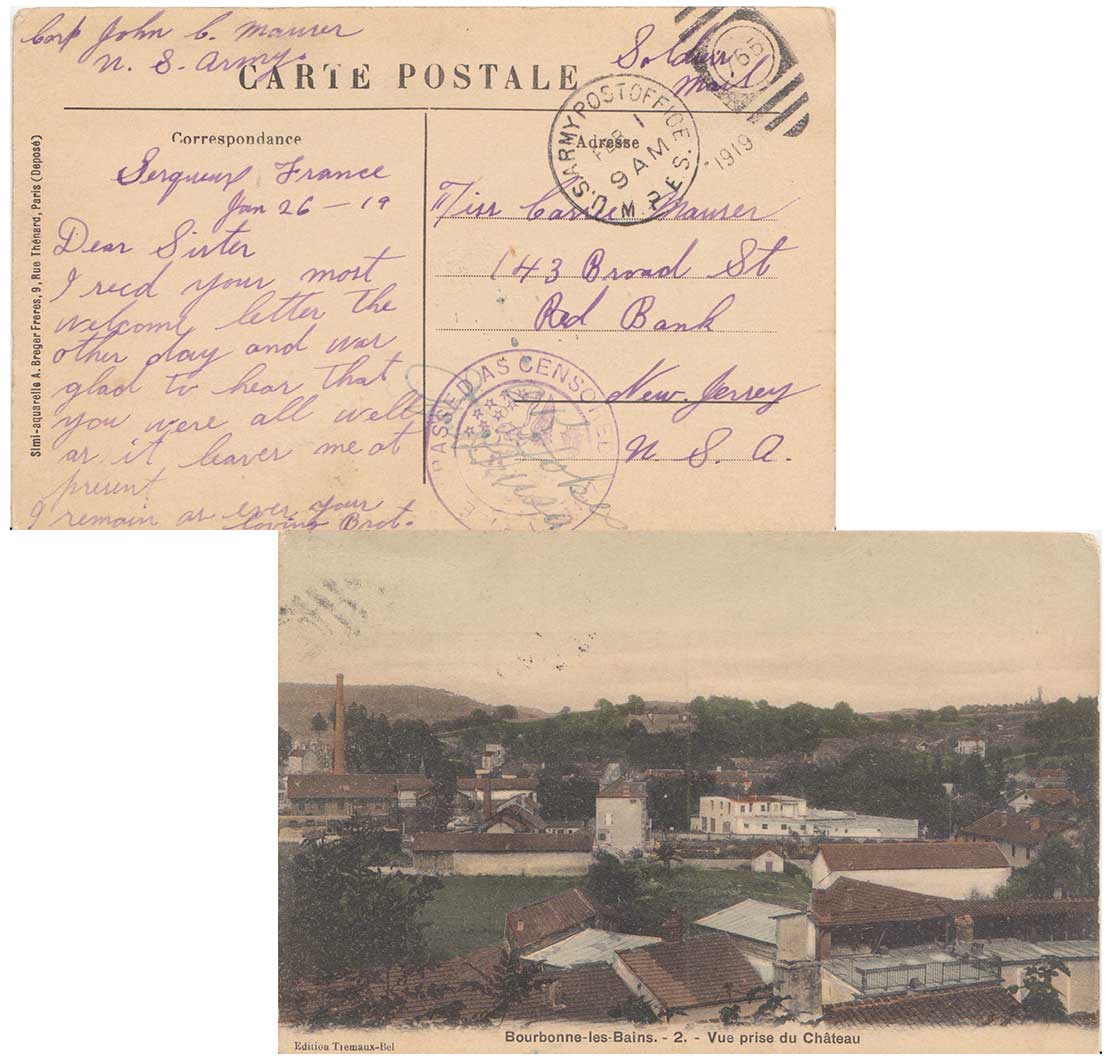 Corp John C. Maurer
U. S. Army.
Soldiers
Mail
CARTE POSTALE
765
U.S. ARMY POST OFFICE
M.P.E.S.
FEB 1
9 AM
1919
Correspondance
Adresse
Simi-aquarelle A. Breger Freres, 9, Rue Thénard, Paris (Deposé)
Serqueux France
Jan 26 - 19
Dear Sister
I recd your most
welcome letter the
other day and was
glad to hear that
you were all well
as it leaves me at
present
I remain as ever your
loving Brot.
Miss Carrie Maurer
143 Broad St
Red Bank
New Jersey
U. S. A.
PASSED AS CENSORED
Bourbonne-les-Bains. - 2. - Vue prise du Château
Edition Tremaux-Bel